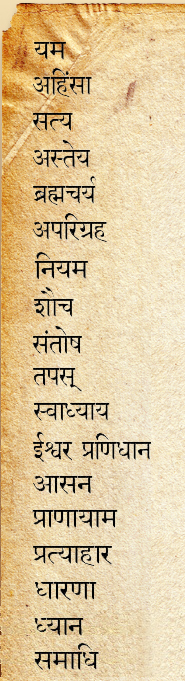 यम
अहिंसा
सत्य
अस्तेय
ब्रह्मचर्य
अपरिग्रह
नियम
शौच
संतोष
तपस्
स्वाध्याय
ईश्वर प्रणिधान
आसन
प्राणायाम
प्रत्याहार
धारणा
ध्यान
समाधि